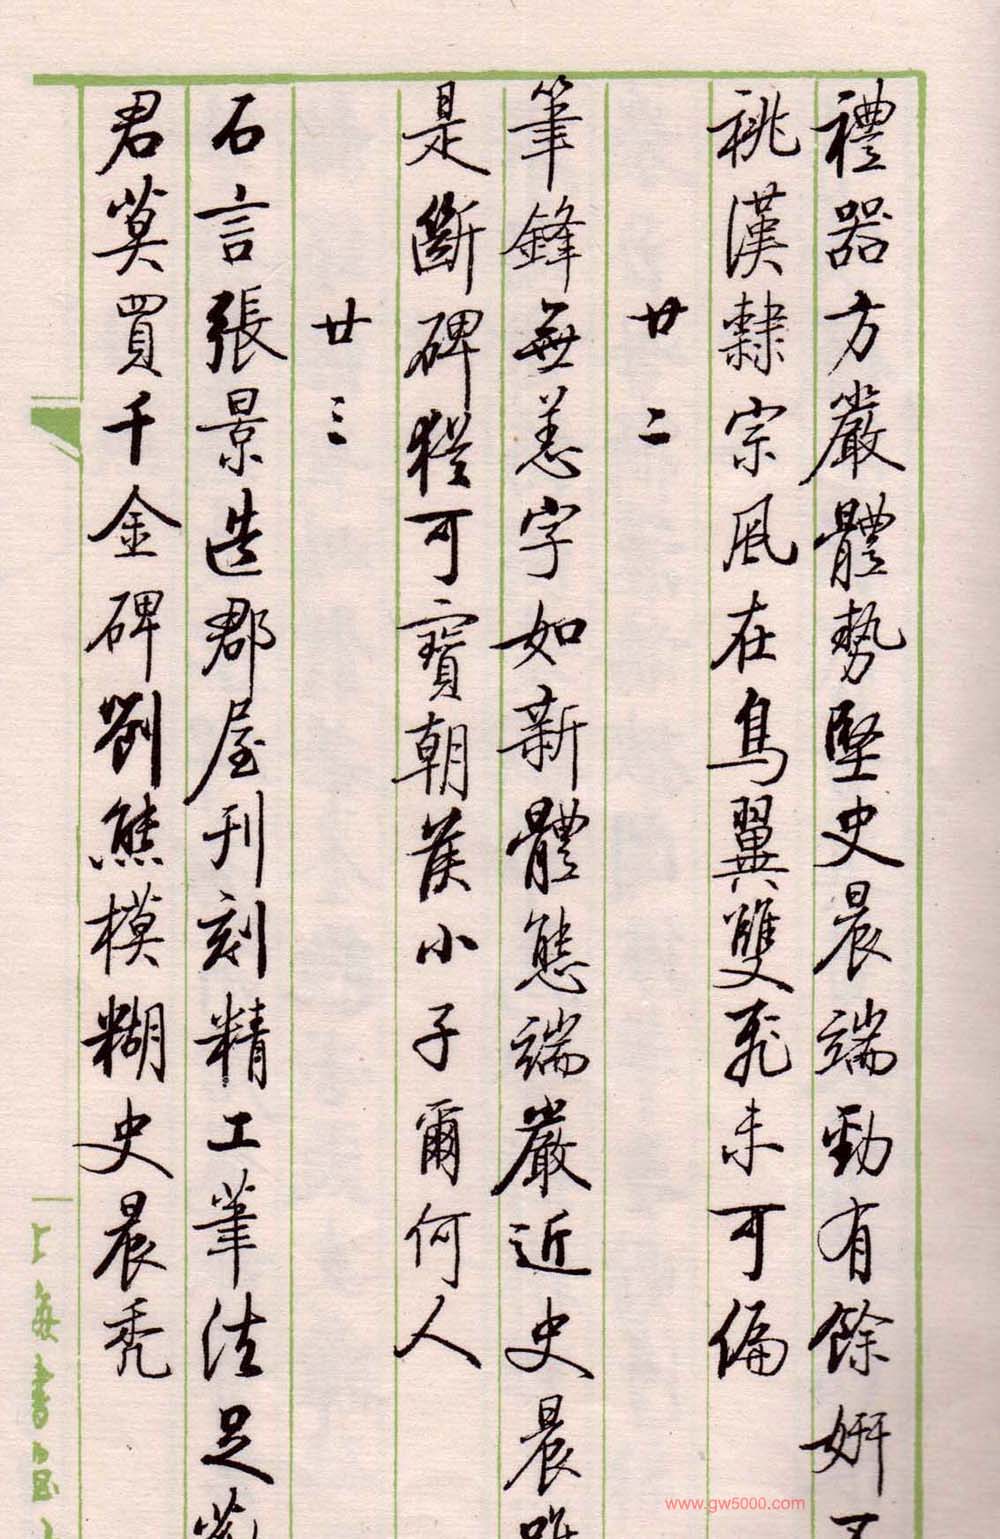 禮器方嚴體勢堅史晨端勁有餘妍不
祧漢隸宗風在鳥翼雙飛未可偏
廿二
筆鋒無恙字如新體態端嚴近史晨唯
是斷碑猶可寶朝侯小子爾何人
廿三
石言張景造郡屋刊刻精工筆法足
君莫買千金碑劉熊模糊史晨禿
上海書畫
www.gw5000.com